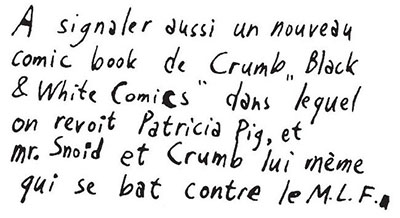 A signaler aussi un nouveau
comic book de Crumb „Black
& White Comics" dans lequel
on revoit Patricia Pig, et
mr. Snoid et Crumb lui même
qui se bat contre le M.L.F.